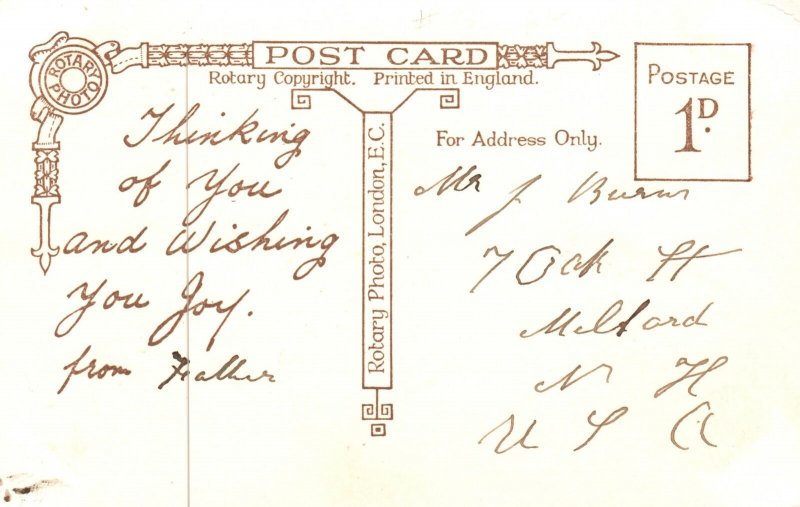 POST CARD
Rotary Copyright. Printed in England.
ROTARY PHOTO
POSTAGE
1D.
For Address Only.
Rotary Photo, London, E.C.
Thinking
of You
and Wishing
You Joy.
from Father
Mr J Burns
7 Oak St
Milford
N H
U S A